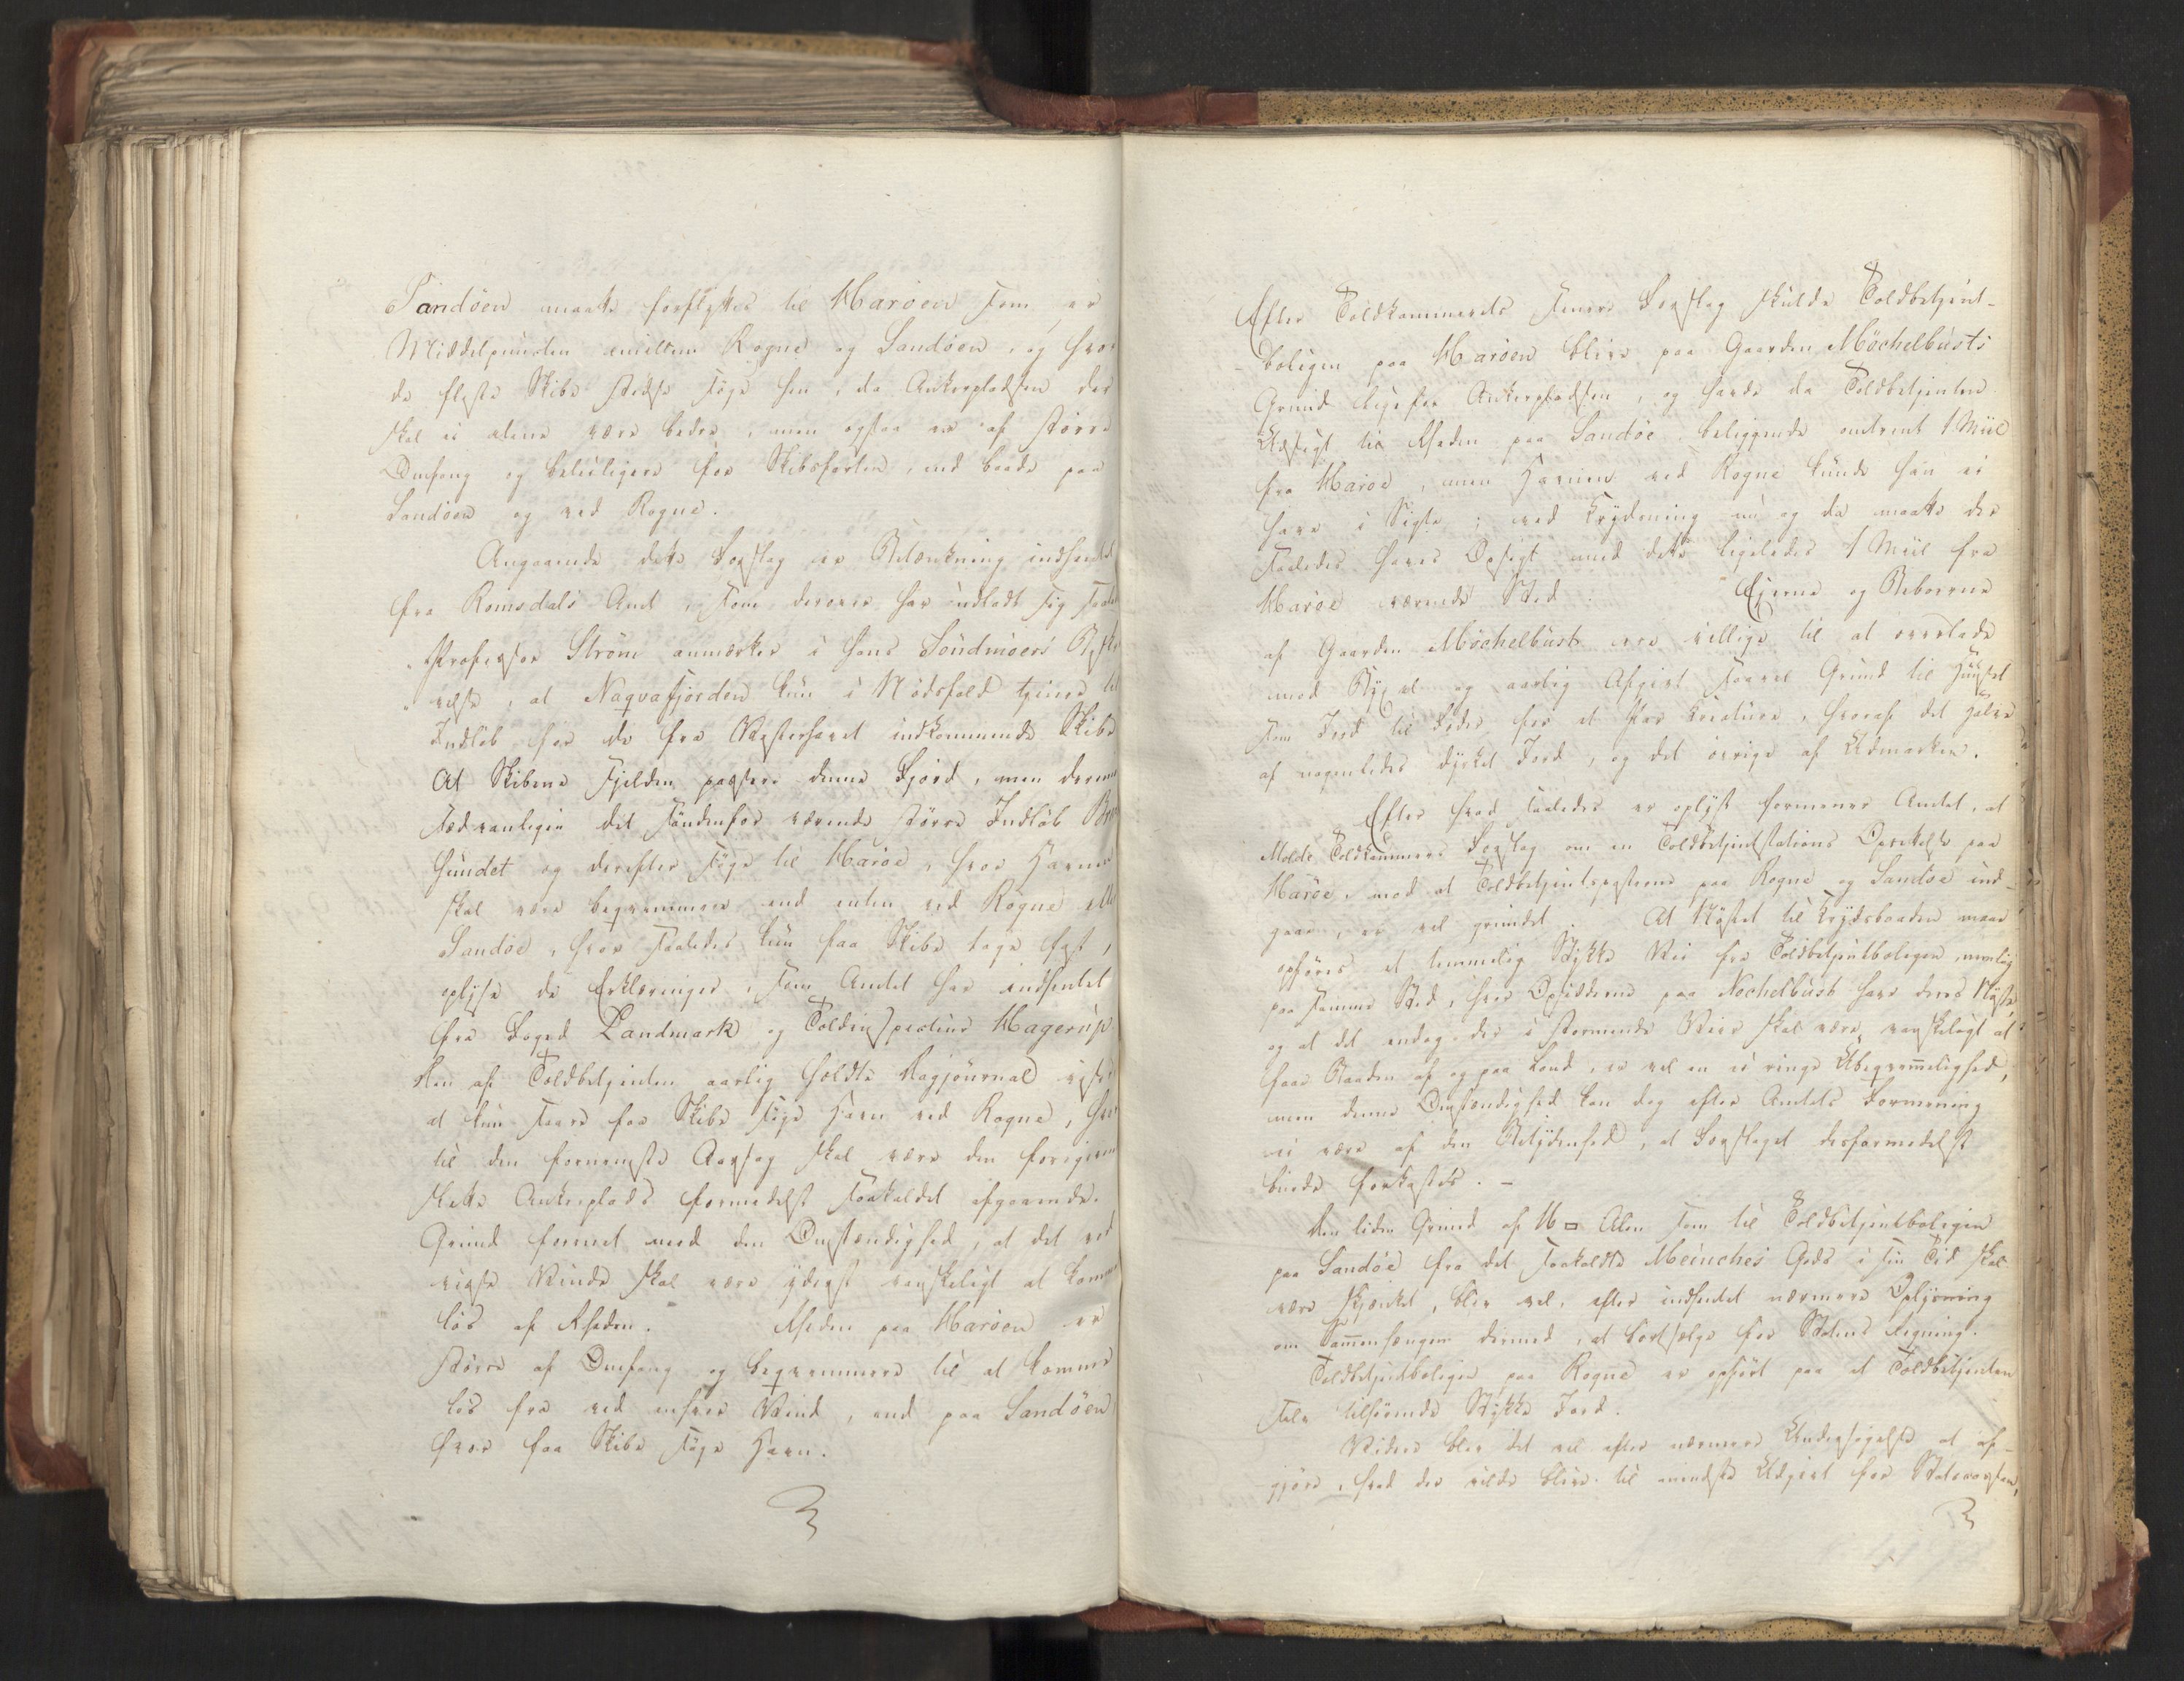 Sandöen maatte forflyttes til Haröen som er
Middelpuncten imellem Rogne og Sandöen, og hvor
de fleste Skibe stedse söge hen, da Ankerpladsen der
skal ei alene være bedre, men ogsaa er af större
Omfang og beleiligere for Skibsfarten, end baade paa
Sandöen og ved Rogne.
Angaaende dette Forslag er Betænkning indhentet
fra Romsdals Amt, som derover har indladt sig saaledes
"Professor Ström anmærker i hans Söndmöers Beskri
"velse, at Naqvafjorden kun i Nödsfald tjener til
Indlöb for de fra Vesterhavet indkommende Skibe
At Skibene sjelden passere denne Fjord, men derimod
sædvanligen det söndenfor værende större Indlöb Bre
sundet og derefter söge til Haröe, hvor Havnen
skal være beqvemmere end enten ved Rogne eller
Sandöe, hvor saaledes kun faa Skibe tage fast,
oplyse de Erklæringer, som Amtet har indhentet
fra Foged Landmark og Toldinspecteur Hagerup.
Den af Toldbetjenten aarlig holdte Dagjournal viser
at kun saare faa Skibe söge Havn ved Rogne, hvor
til den fornemste Aarsag skal være den forigivne
slette Ankerplads formedelst saakaldet afgaaende
Grund forenet med den Omstændighed, at det ved
visse Vinde skal være yderst vanskeligt at komme
lös af Rheden. Rheden paa Haröen er
större af Omfang og beqvemmere til at komme
lös fra ved enhver Vind, end paa Sandöen
hvor faa Skibe söge Havn.
Efter Toldkammerets senere Forslag skulde Toldbetjent-
boligen paa Haröen blive paa Gaarden Möchelbusts
Grund lige for Ankerpladsen, og havde da Toldbetjenten
Udsigt til Rheden paa Sandöe beliggende omtrent 1 Miil
fra Haröe, men Havnen ved Rogne kunde han ei
have i Sigte; ved Krydsning nu og da maatte der
saaledes haves Opsigt med dette ligeledes 1 Miil fra
Haröe værende Sted. Ejerne og Beboerne
af Gaarden Möchelbust ere villige til at overlade
mod Byxel og aarlig Afgivt saavel Grund til Huustot
som Jord til Föder for et Par Kreature, hvoraf det halve
af nogenledes dyrket Jord, og det övrige af Udmarken.
Efter hvad saaledes er oplyst formener Amtet, at
Molde Toldkammers Forslag om en Toldbetjentstations Oprettelse paa
Haröe, mod at Toldbetjentsposterne paa Rogne og Sandöe ind-
gaae, er vel grundet. At Nöstet til Krydsbaaden maae
opföres et temmelig Stykke Vei fra Toldbetjentboligen, nemlig
paa samme Sted, hvor Opsidderne paa Mochelbust have deres Nöste,
og at det endog der i stormende Veir skal være vanskeligt at
faae Baaden af og paa Land, er vel en ei ringe Ubeqvemmelighed,
men denne Omstændighed kan dog efter Amtets Formening
ei være af den Betydenhed, at Forslaget desformedelst
burde forkastes. -
Den liden Grund af 16 □ Alen som til Toldbetjentboligen
paa Sandöe fra det saakaldte Meinches Gods i sin Tid skal
være skjenket, blev vel, efter indhentet nærmere Oplysning
om Sammenhængen dermed, at bortsælge for Statens Regning.
Toldbetjentboligen paa Rogne er opfört paa et Toldbetjenten
selv tilhörende Stykke Jord.
Videre blev det vel efter nærmere Undersögelse at af-
gjöre, hvad der vilde blive til mindste Udgivt for Statscassen,